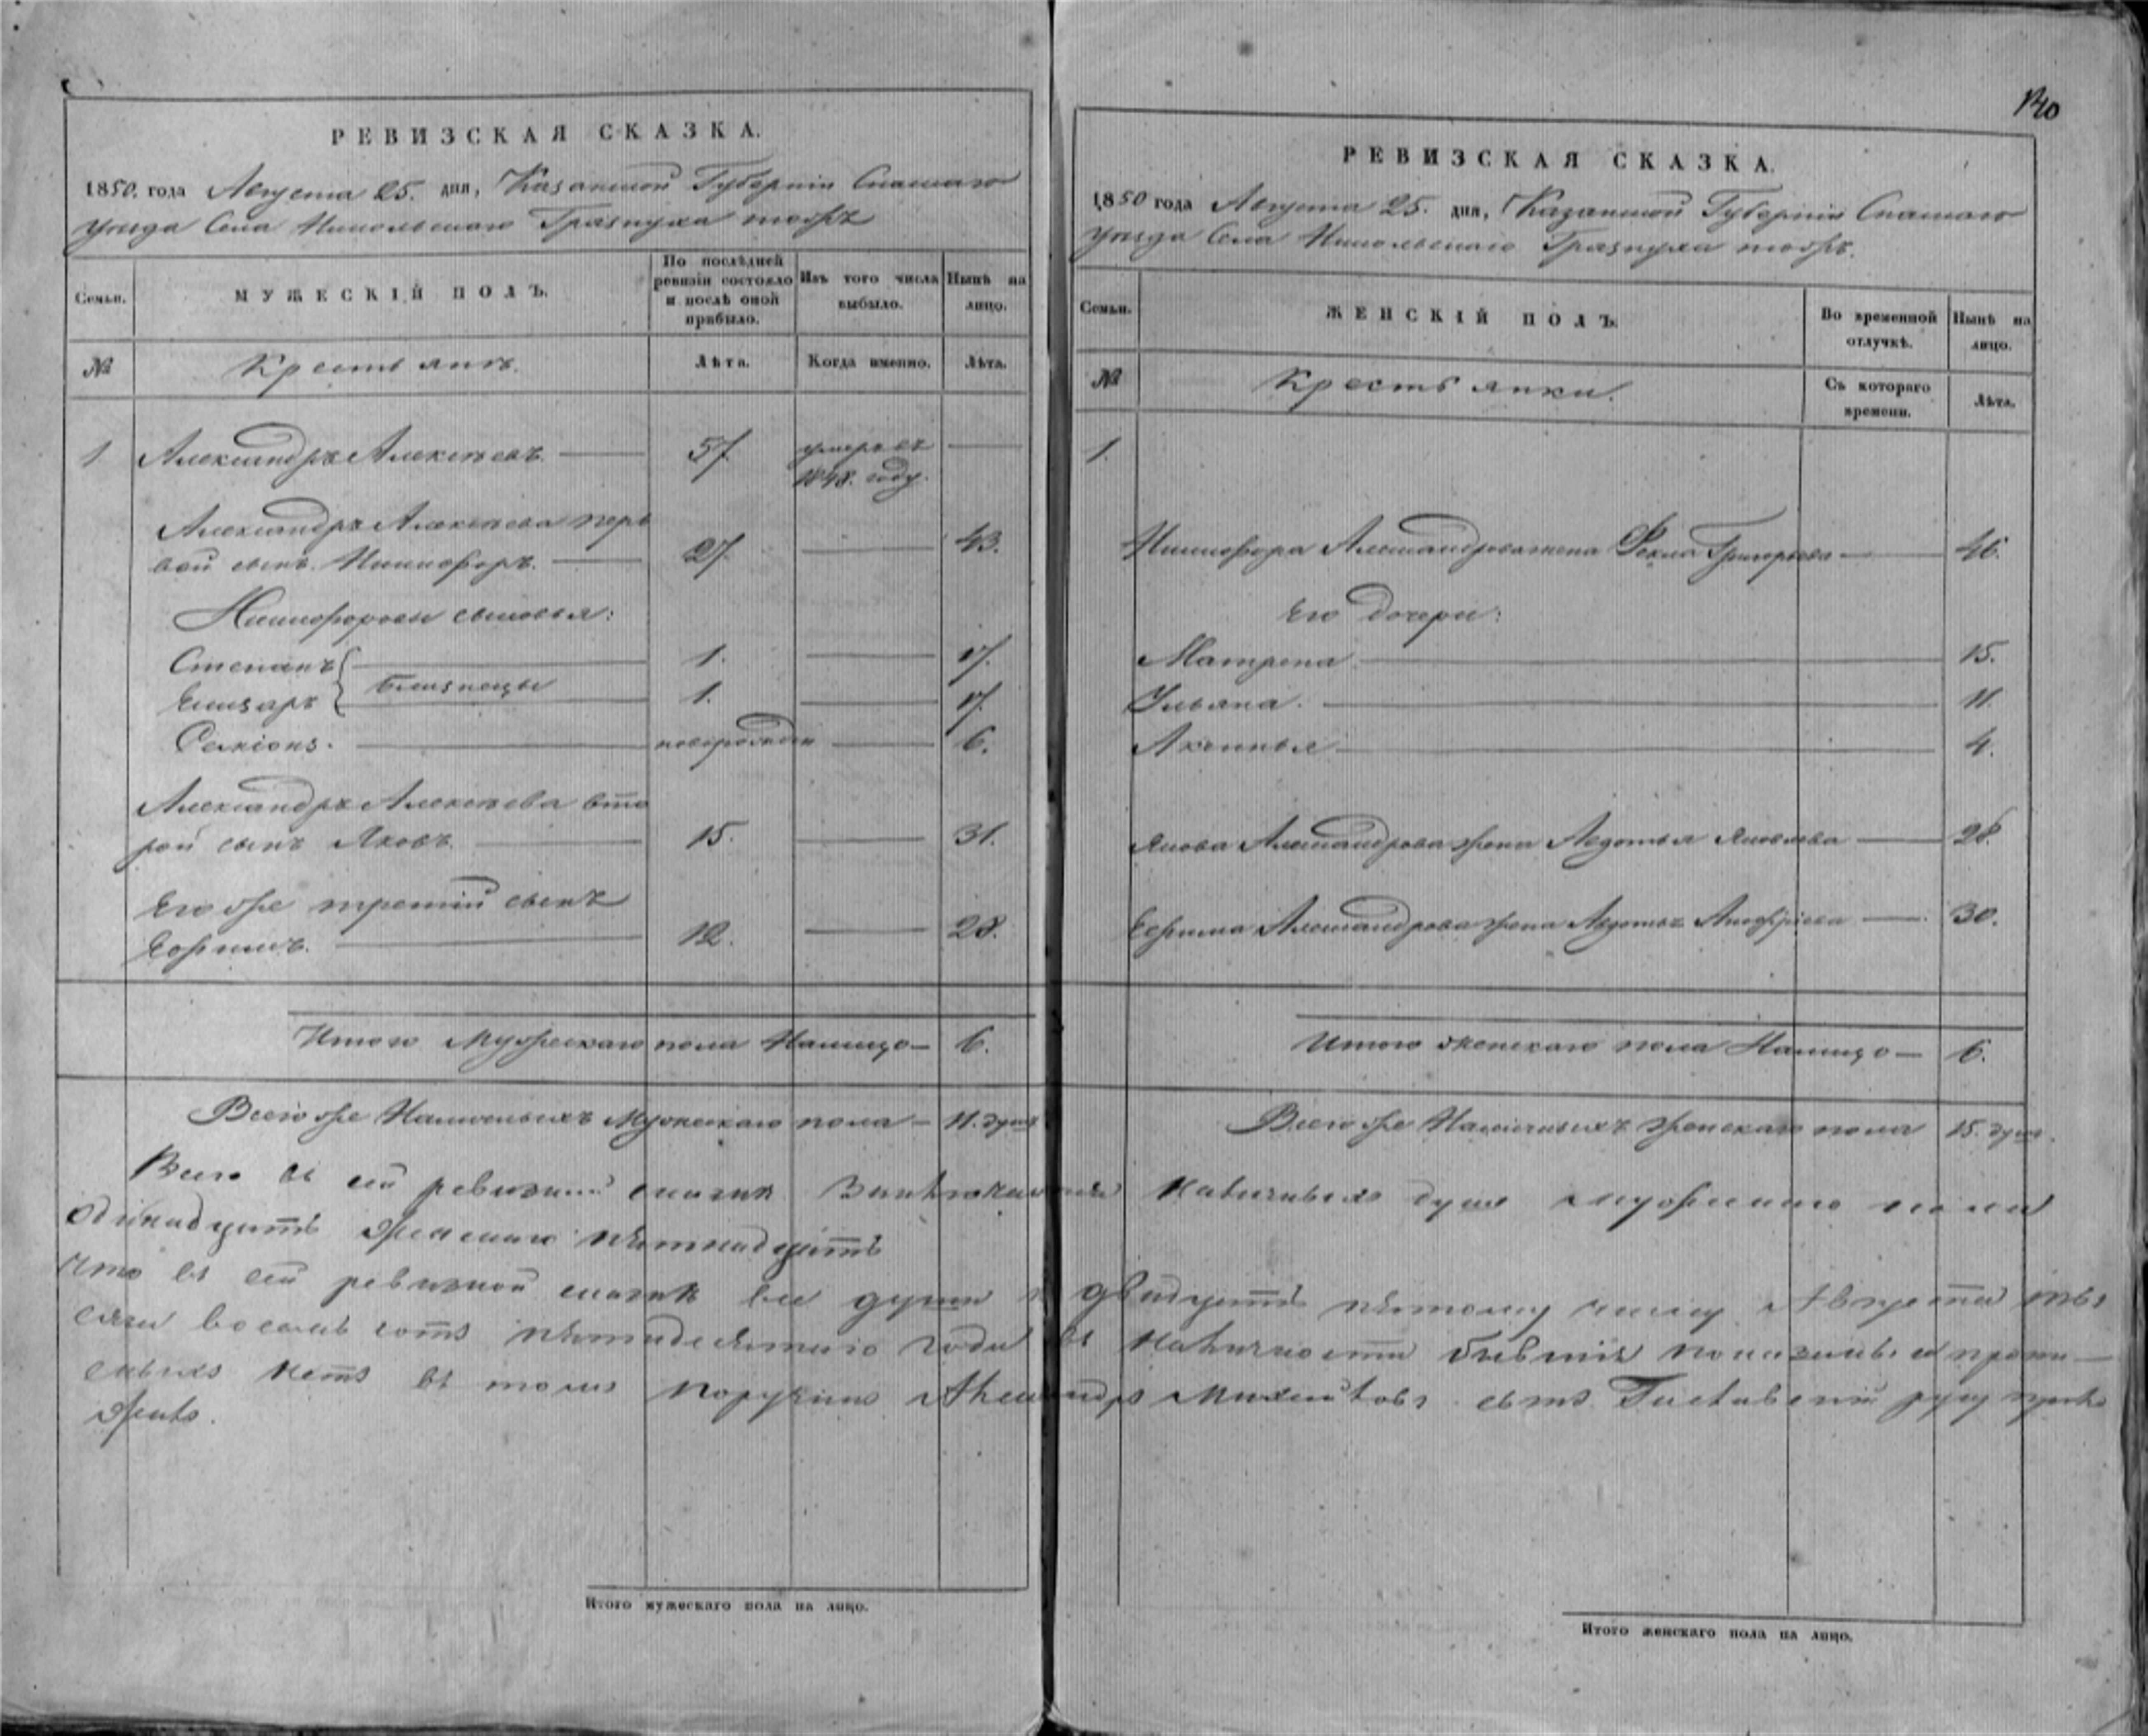 140
РЕВИЗСКАЯ СКАЗКА.
1850. года Августа 25. дня, Казанской Губерніи Спаскаго
уезда Села Никольскаго Грязнуха тожъ
Семьи.
МУЖЕСКІЙ ПОЛЪ.
По послѣдней ревизіи состояло и послѣ оной прибыло.
Изъ того числа выбыло.
Нынѣ на лицо.
№
Крестьянъ.
Лѣта.
Когда именно.
Лѣта.
1 Александръ Алексеевъ. 57. умеръ въ
1848. году.
Александръ Алексеева пер
вой сынъ Никифоръ. 27. 43.
Никифоровы сыновья:
Степанъ 1. 17.
близнецы
Елизаръ 1. 17.
Семіонъ. новорожден 6.
Александръ Алексеева вто
рой сынъ Яковъ. 15. 31.
Его же третий сынъ
Ефимъ. 12. 28.
Итого Мужескаго пола Налицо 6.
Всего же Наличныхъ Мужескаго пола 11. душъ
РЕВИЗСКАЯ СКАЗКА.
1850 года Августа 25. дня, Казанской Губерніи Спаскаго
уезда Села Никольскаго Грязнуха тожъ.
Семьи.
ЖЕНСКІЙ ПОЛЪ.
Во временной отлучкѣ.
Нынѣ на лицо.
№
Крестьянки.
Съ котораго времени.
Лѣта.
1.
Никифора Александрова жена Фекла Григорьева 46.
Его дочери:
Матрена 15.
Ульяна. 11.
Аксинья 4.
Якова Александрова жена Авдотья Яковлева 28.
Ефима Александрова жена Авдотья 30.
Итого женскаго пола Налицо 6.
Всего же Наличныхъ женскаго пола 15. душ.
Всего въ сей ревизкой сказкѣ наличныхъ душъ мужескаго пола
одинадцать женскаго пятнадцать
что въ сей ревизкой сказкѣ все души к двадцать пятому числу Августа тыс
восемь сотъ пятидесятаго года въ наличности бывшія показаны и
нетъ въ томъ Александръ сынъ руку прило
жилъ.
Итого мужескаго пола на лицо.
Итого женскаго пола на лицо.